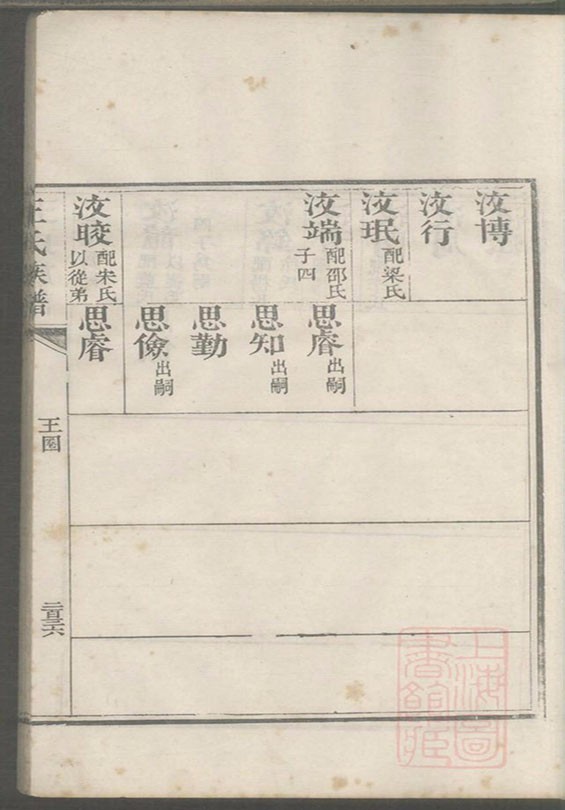 汝博
汝行
汝珉 配梁氏
汝端 配邵氏 子四
汝晈 配朱氏 以從弟
思睿 出嗣
思知 出嗣
思勤
思儉 出嗣
思睿
王氏族譜
王圈
上海圖書館藏